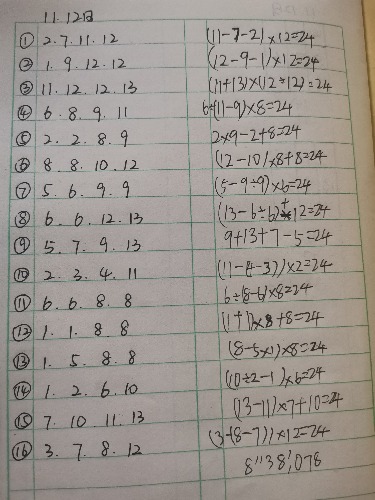 11.12日
① 2. 7. 11. 12 (11-7-2)×12=24
② 1. 9. 12. 12 (12-9-1)×12=24
③ 11. 12. 12. 13 (11+13)×(12÷12)=24
④ 6. 8. 9. 11 6÷(11-9)×8=24
⑤ 2. 2. 8. 9 2×9-2+8=24
⑥ 8. 8. 10. 12 (12-10)×8+8=24
⑦ 5. 6. 9. 9 (5-9÷9)×6=24
⑧ 6. 6. 12. 13 (13-6÷6)+12=24
⑨ 5. 7. 9. 13 9+13+7-5=24
⑩ 2. 3. 4. 11 (11-(4-3))×2=24
⑪ 6. 6. 8. 8 6÷(8-6)×8=24
⑫ 1. 1. 8. 8 (1+1)×8+8=24
⑬ 1. 5. 8. 8 (8-5×1)×8=24
⑭ 1. 2. 6. 10 (10÷2-1)×6=24
⑮ 7. 10. 11. 13 (13-11)×7+10=24
⑯ 3. 7. 8. 12 (3-(8-7))×12=24
8"38',078